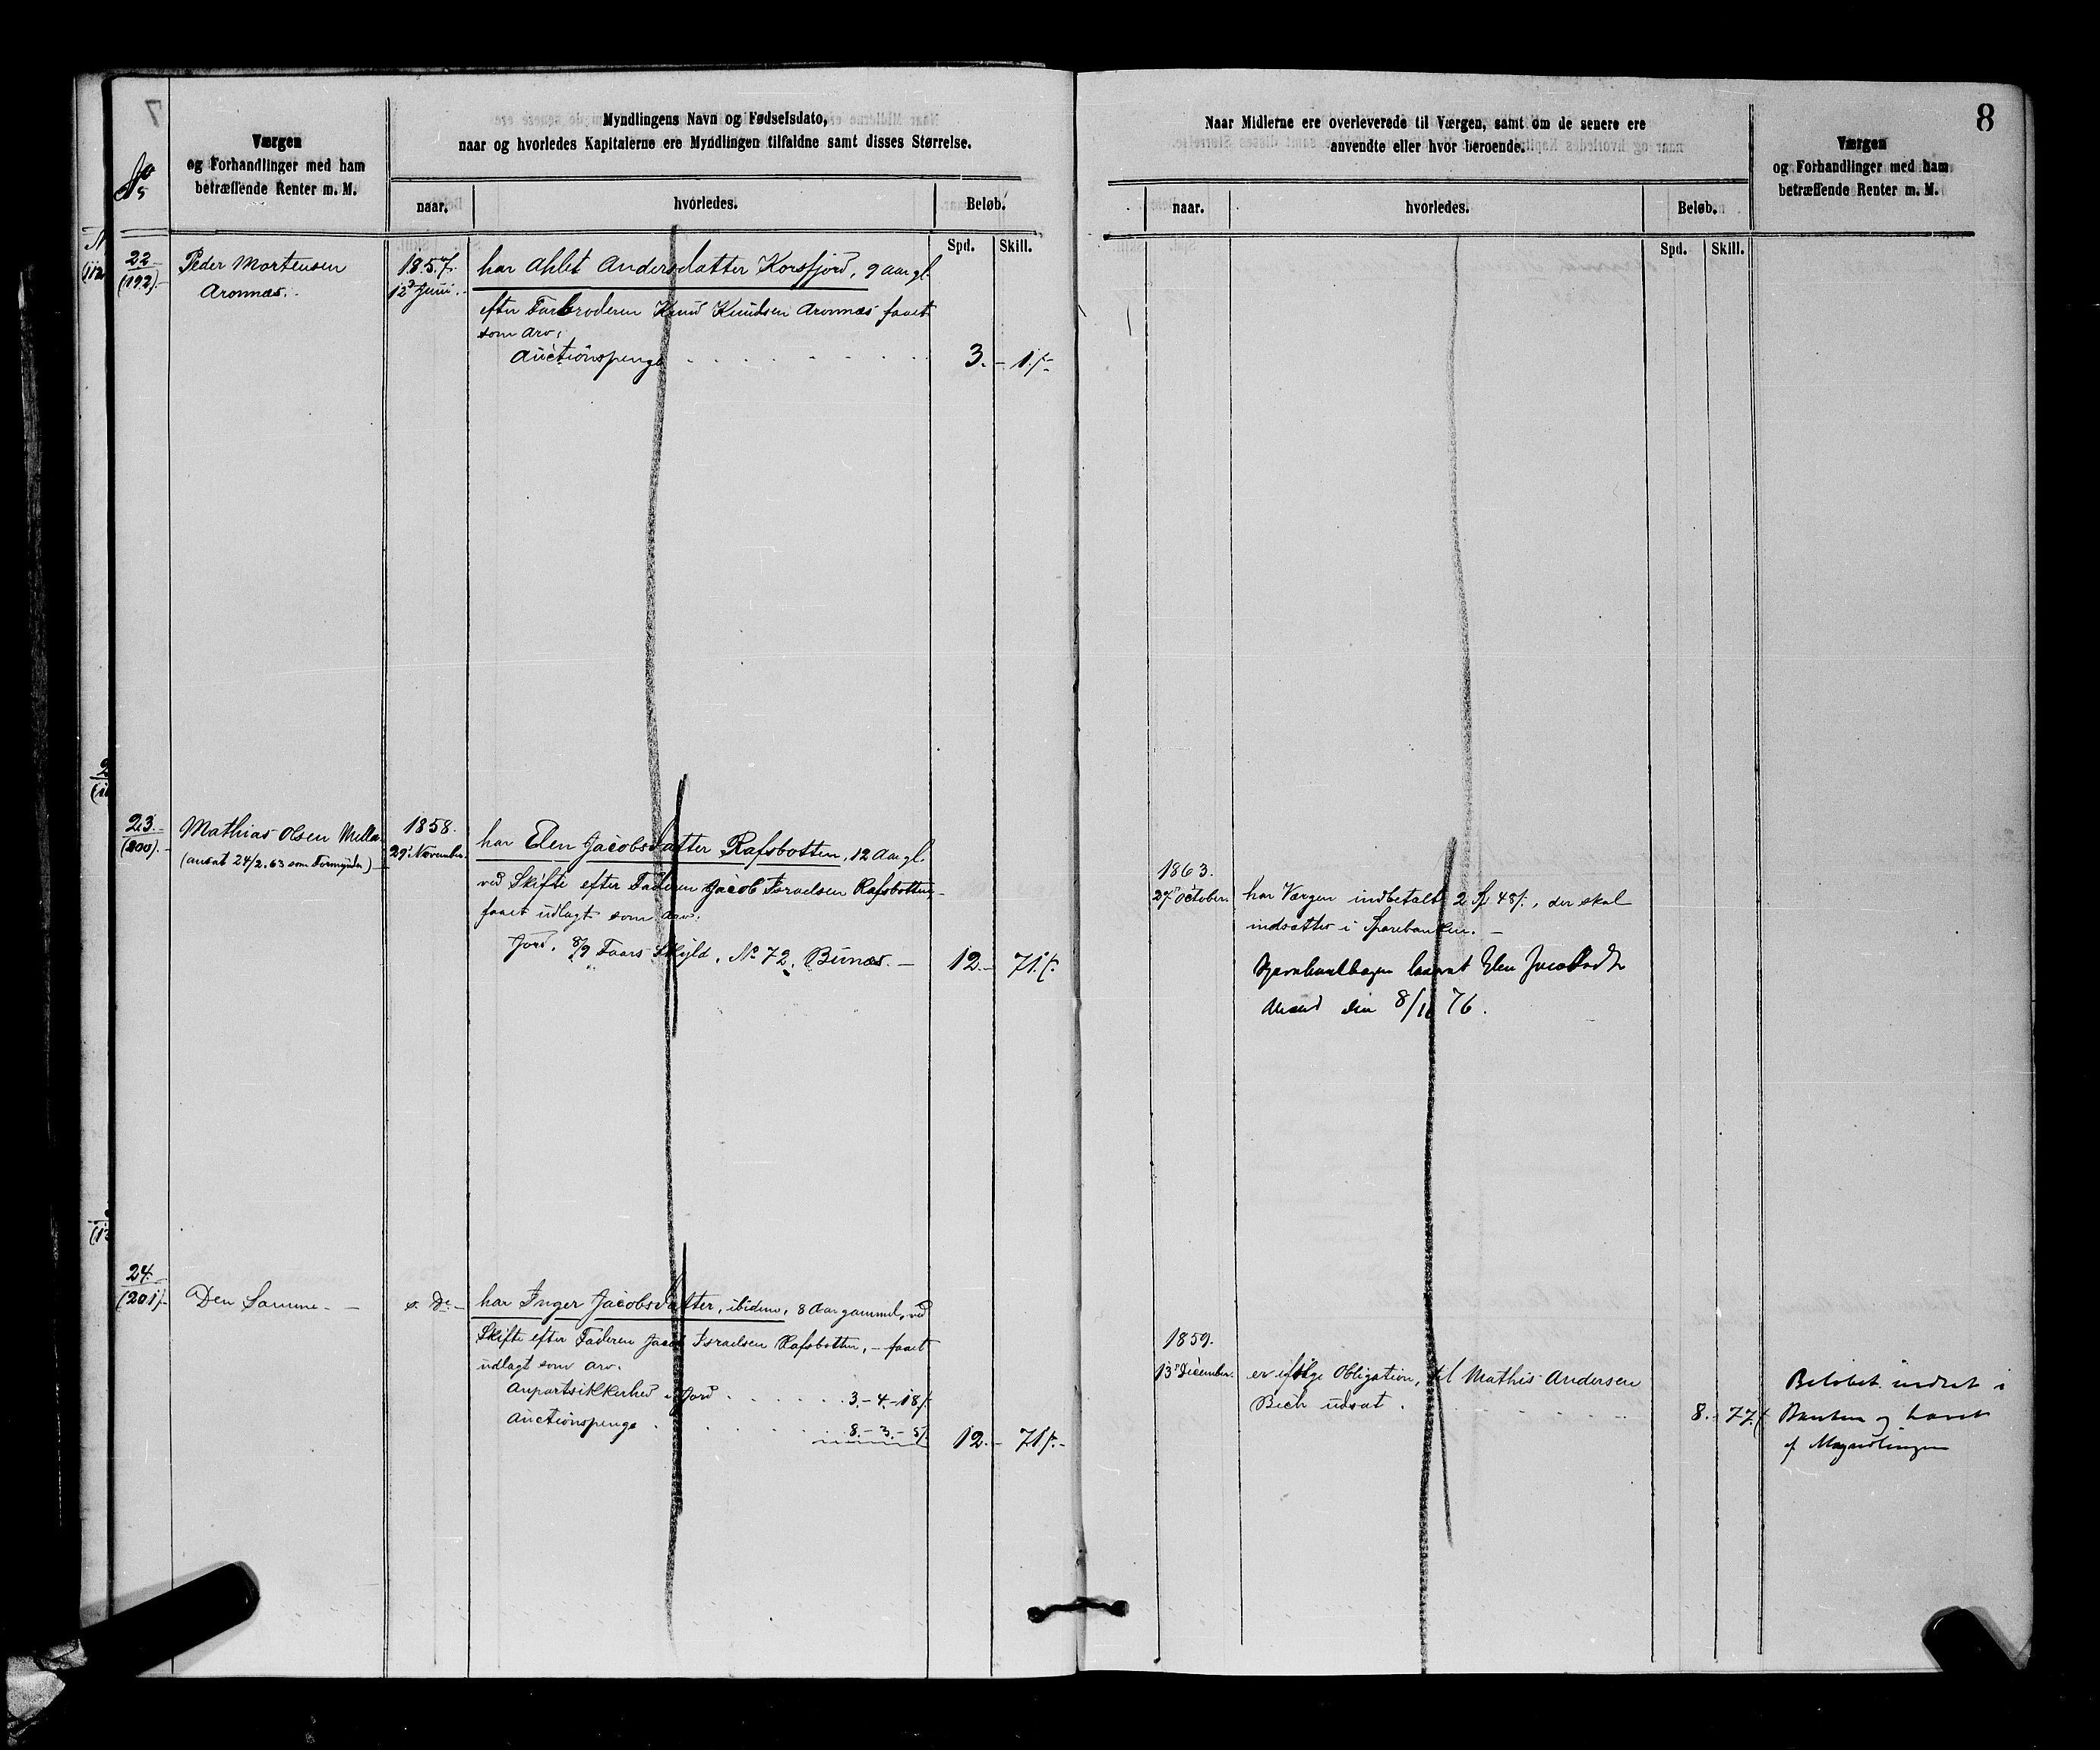 8
No
Værgen
og Forhandlinger med ham
betræffende Renter m. M.
Myndlingens Navn og Fødselsdato,
naar og hvorledes Kapitalerne ere Myndlingen tilfaldne samt disses Størrelse.
naar.
hvorledes.
Beløb.
Spd.
Skill.
22
(192).
Peder Mortensen
Aronnæs.
1857.
12 Juni.
har Ahlet Andersdatter Korsfjord, 9 aar gl.
efter Farbroderen Knud Knudsen Aronnæs faaet
som arv:
Auctionspenge
3. – 1 s
23.
(200).
Mathias Olsen Mella
(ansat 24/2. 63 som Formynder)
1858.
29 November.
har Elen Jacobsdatter Rafsbotten, 12 Aar gl.
ved Skifte efter Faderen Jacob Israelsen Rafsbotten,
faaet udlagt som arv.
Jord. 8/9 Faars Skyld. No 72. Bunæs.
12. – 71 s.
24.
(201)
Den Samme.
s. D.
har Inger Jacobsdatter, ibidem, 8 Aar gammel, ved
Skifte efter Faderen Jacob Israelsen Rafsbotten, – faaet
udlagt som arv.
Anpartsikkerhed i Jord . . . 3.–4.–18 s
Auctionspenge . . . 8.–3.–5 s.
12. – 71 s.
Naar Midlerne ere overleverede til Værgen, samt om de senere ere
anvendte eller hvor beroende.
Værgen
og Forhandlinger med ham
betræffende Renter m. M.
naar.
hvorledes.
Beløb.
Spd.
Skill.
1863.
27 October.
har Værgen indbetalt 2 Sp 48 s., der skal
indsættes i Sparebanken.
Elen
den 8/11 76.
1859.
13 December.
er ifølge Obligation, til Mathis Andersen
Bech udsat.
8. – 77 s.
Beløbet indsat i
Banken og hævet
af Myndlingen